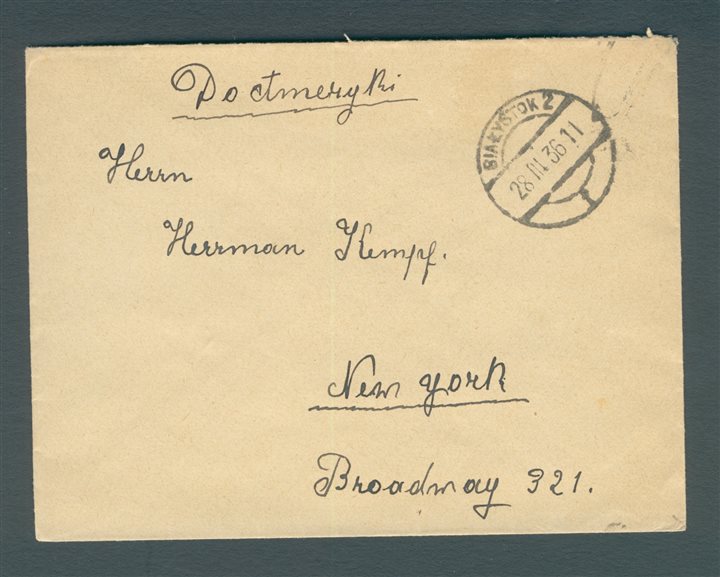 Do Ameryki
BIAŁYSTOK 2
28.III.36.11
1
Herrn
Herrman Kempf.
New york
Broadway 321.